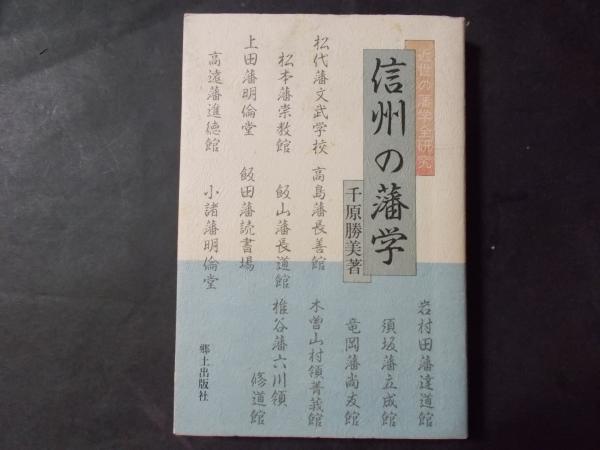 近世の藩学全研究
信州の藩学
千原勝美著
松代藩文武学校
高島藩長善館
松本藩崇教館
飯山藩長道館
上田藩明倫堂
飯田藩読書場
高遠藩進徳館
小諸藩明倫堂
岩村田藩達道館
須坂藩立成館
竜岡藩尚友館
木曽山村領菁莪館
椎谷藩六川領
修道館
郷土出版社